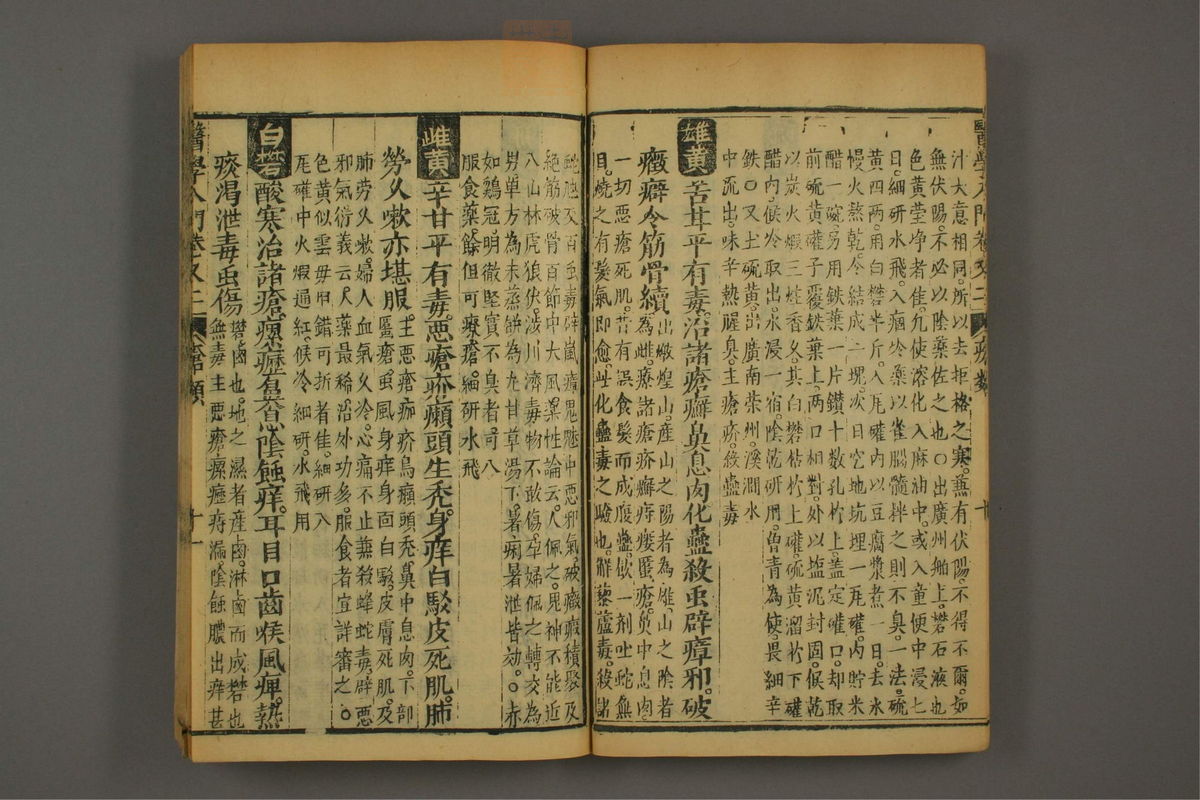 汁大意相同所以去拒格之寒兼有伏陽不得不爾如
無伏陽不必以陰藥佐之也〇出廣州舶上礬石液也
色黃瑩淨者佳凡使溶化入麻油中或入童便中浸七
日細研水飛入痼冷藥以雀腦髓拌之則不臭一法硫
黃四兩用白礬半斤入瓦礶內以豆腐漿煮一日去水
慢火熬乾令結成一塊次日空地坑埋一瓦礶內貯米
醋一碗另用鉄葉一片鑽十數孔於上蓋定礶口却取
前硫黃礶子覆鉄葉上兩口相對外以塩泥封固候乾
以炭火煆三炷香久其白礬枯於上礶硫黃溜於下礶
醋內候冷取出水浸一宿陰乾研用曾青為使畏細辛
鉄〇又土硫黃出廣南榮州溪澗水
中流出味辛熱腥臭主瘡疥殺蠱毒
雄黃苦甘平有毒治諸瘡癬鼻息肉化蠱殺虫辟瘴邪破
癥癖令筋骨續出燉煌山產山之陽者為雄山之陰者
為雌療諸瘡疥癬痔瘻䘌瘡鼻中息肉
一切惡瘡死肌昔有誤食髮而成瘕蠱飲一劑吐蛇無
目燒之有髮氣即愈此化蠱毒之驗也觧藜蘆毒殺諸
蛇虺及百虫毒辟嵐瘴鬼魅中惡邪氣破癥瘕積聚及
絕筋破骨百節中大風藥性論云人佩之鬼神不能近
入山林虎狼伏涉川濟毒物不敢傷孕婦佩之轉女為
男單方為末蒸餅為丸甘草湯下暑痢暑泄皆効〇赤
如鷄冠明徹堅實不臭者可入
服食藥餘但可療瘡細研水飛
雌黃辛甘平有毒惡瘡疥癩頭生禿身痒白駁皮死肌肺
勞久嗽亦堪服主惡瘡痂疥烏癩頭禿鼻中息肉下部
䘌瘡虫風身痒身面白駁皮膚死肌及
肺勞久嗽婦人血氣久冷心痛不止兼殺蜂蛇毒辟惡
邪氣衍義云入藥最稀治外功多服食者宜詳審之〇
色黃似雲母甲錯可折者佳細研入
瓦礶中火煆通紅候冷細研水飛用
白礬酸寒治諸瘡瘰癧鼻息陰蝕痒耳目口齒喉風痺熱
痰渴泄毒虫傷礬鹵也地之濕者產鹵淋鹵而成礬也
無毒主惡瘡瘰癧痔漏陰蝕膿出痒甚
醫學入門卷之二
石類
十一